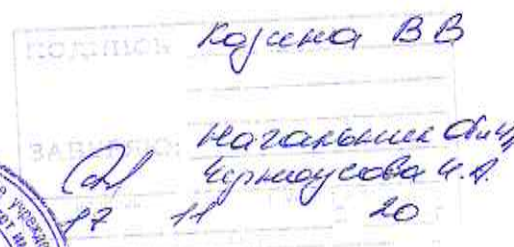 ПОДПИСЬ Козина В В
ЗАВЕРЯЮ: Начальник
Черноусова И.А.
17 11 20